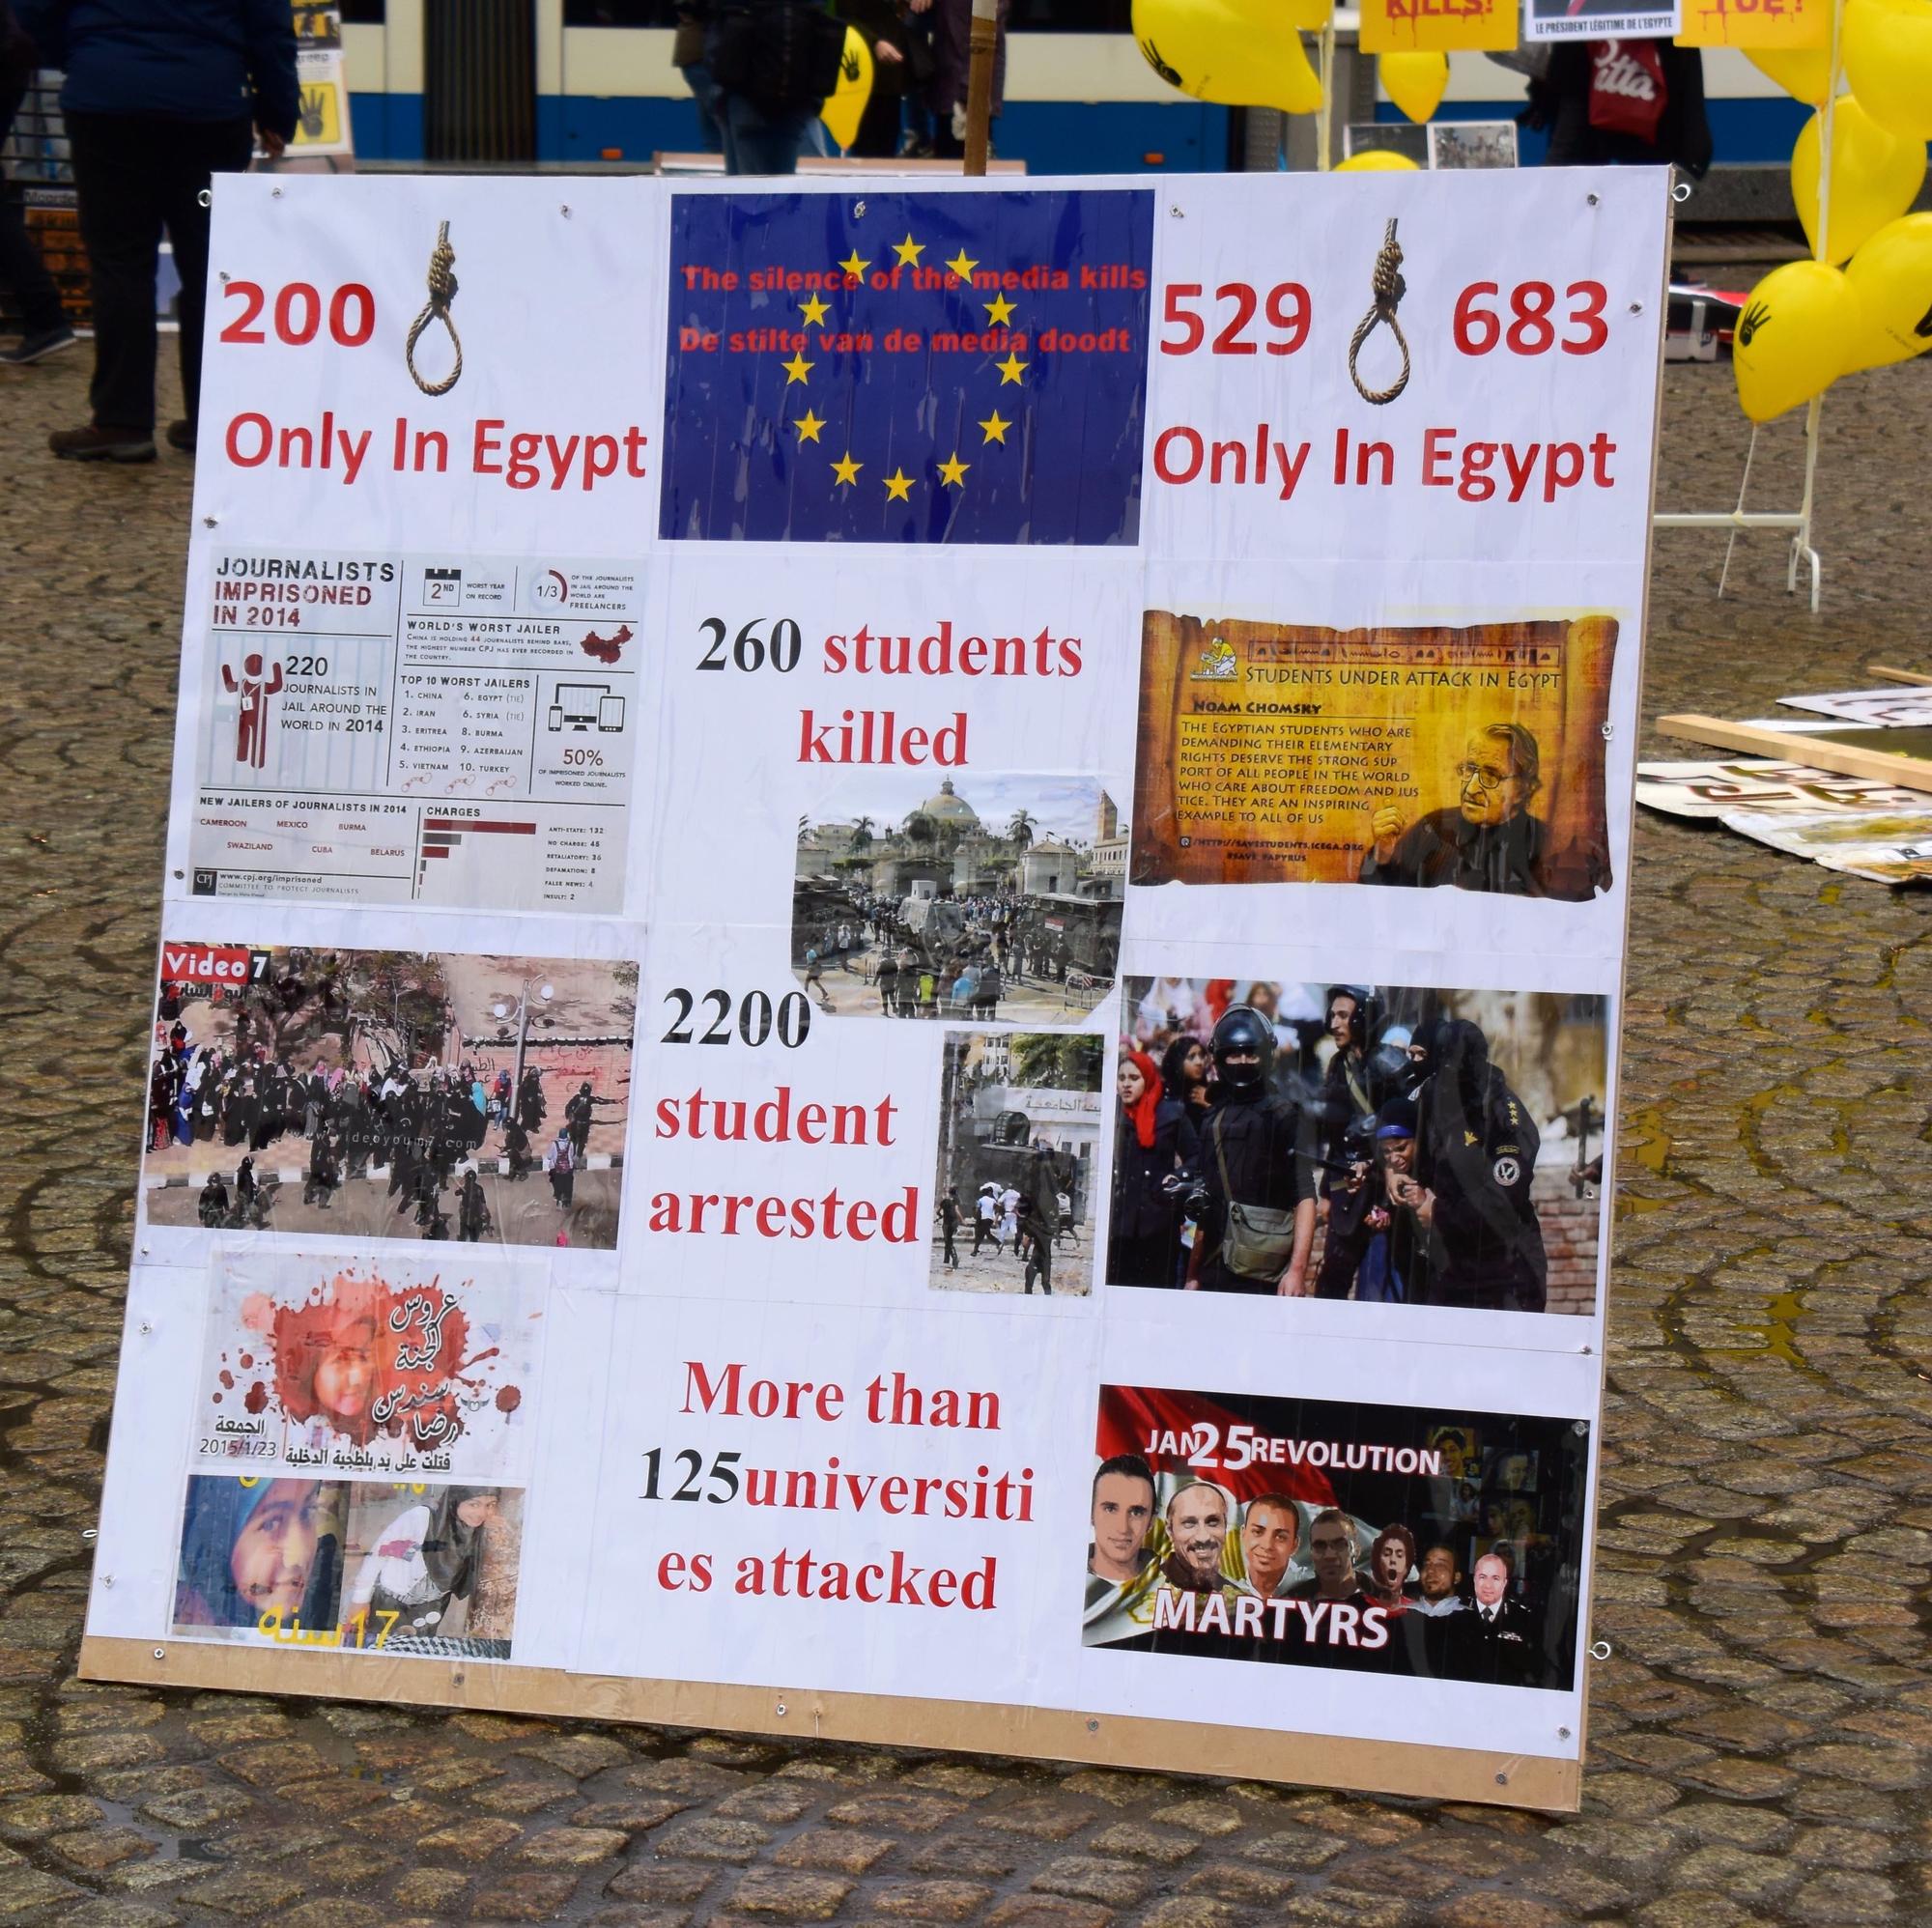 KILLS!
LE PRÉSIDENT LÉGITIME DE L'EGYPTE
TUE!
itta
200
Only In Egypt
The silence of the media kills
De stilte van de media doodt
529 683
Only In Egypt
JOURNALISTS
IMPRISONED
IN 2014
220
JOURNALISTS IN
JAIL AROUND THE
WORLD IN 2014
2ND
WORST YEAR
ON RECORD
1/3
OF THE JOURNALISTS
IN JAIL AROUND THE
WORLD ARE
FREELANCERS
WORLD'S WORST JAILER
CHINA IS HOLDING 44 JOURNALISTS BEHIND BARS,
THE HIGHEST NUMBER CPJ HAS EVER RECORDED IN
THE COUNTRY.
TOP 10 WORST JAILERS
1. CHINA 6. EGYPT (TIE)
2. IRAN 6. SYRIA (TIE)
3. ERITREA 8. BURMA
4. ETHIOPIA 9. AZERBAIJAN
5. VIETNAM 10. TURKEY
50%
OF IMPRISONED JOURNALISTS
WORKED ONLINE.
NEW JAILERS OF JOURNALISTS IN 2014
CAMEROON MEXICO BURMA
SWAZILAND CUBA BELARUS
CHARGES
ANTI-STATE: 132
NO CHARGE: 45
RETALIATORY: 36
DEFAMATION: 8
FALSE NEWS: 4
INSULT: 2
CPJ
www.cpj.org/imprisoned
COMMITTEE TO PROTECT JOURNALISTS
260 students
killed
STUDENTS UNDER ATTACK IN EGYPT
NOAM CHOMSKY
THE EGYPTIAN STUDENTS WHO ARE
DEMANDING THEIR ELEMENTARY
RIGHTS DESERVE THE STRONG SUP
PORT OF ALL PEOPLE IN THE WORLD
WHO CARE ABOUT FREEDOM AND JUS
TICE. THEY ARE AN INSPIRING
EXAMPLE TO ALL OF US
/HTTP://SAVESTUDENTS.ICEGA.ORG
#SAVE_PAPYRUS
Video 7
اليوم السابع
www.videoyoum7.com
2200
student
arrested
عروس
الجنة
سندس
رضا
الجمعة
2015/1/23
قتلت على يد بلطجية الدخلية
17 سنة
More than
125universiti
es attacked
JAN25REVOLUTION
MARTYRS